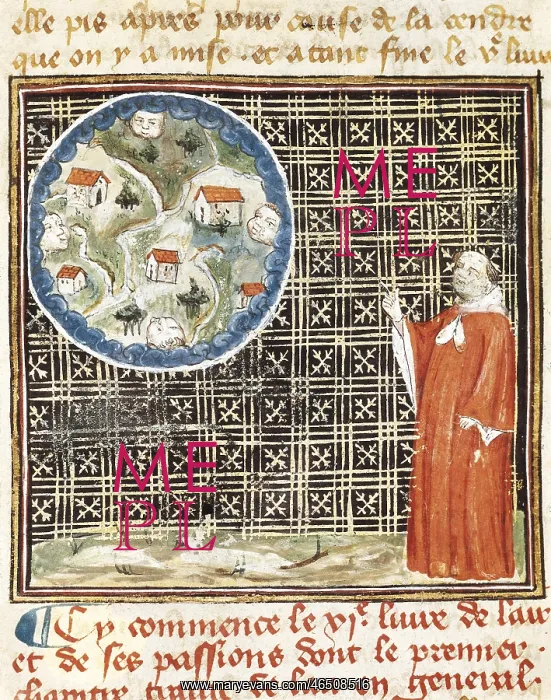 elle pis apres pour cause de la cendre
que on y a mise . et atant fine le vᵉ liure
ME
PL
ME
PL
Cy commence le vjᵉ liure de lair
et de ses passions dont le premier .
chapitre general .
www.maryevans.com/46508516